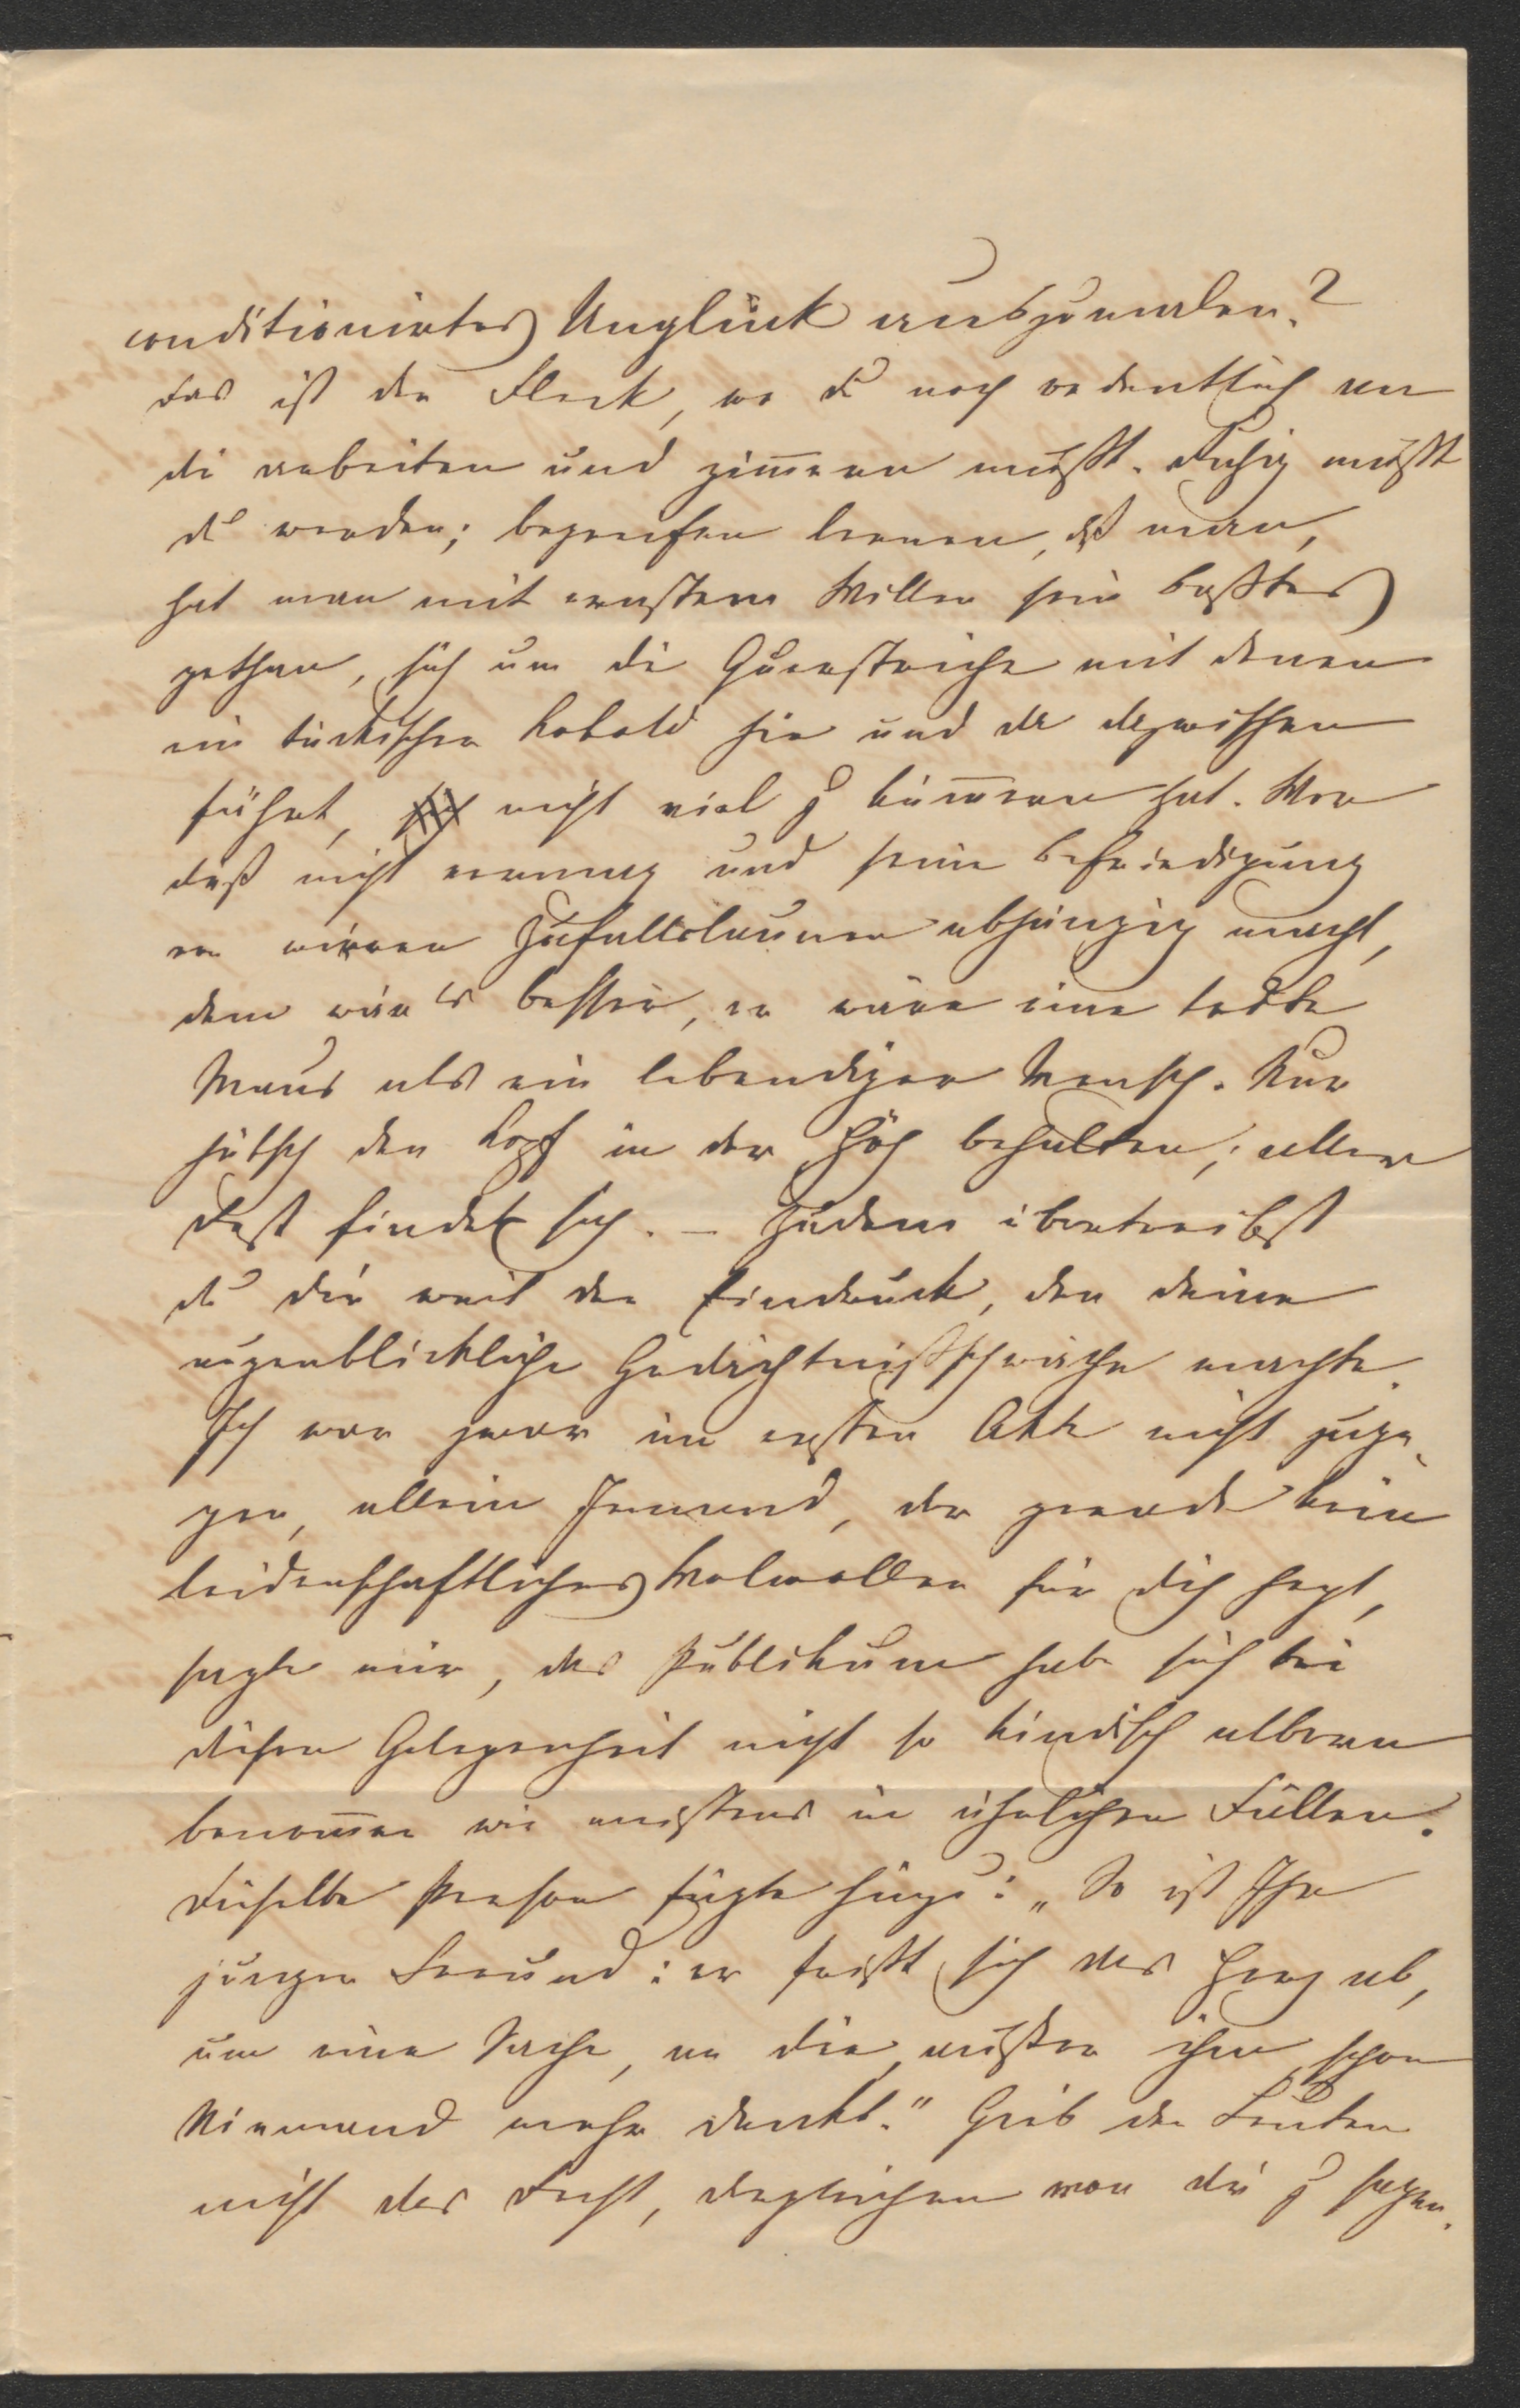 conditionirtes Unglück auszumalen?
Das ist der Fleck, wo du noch ordentlich an
dir arbeiten und zim̅ern mußt. Ruhig mußt
du werden; begreifen lernen, dß man,
hat man mit ernstem Willen sein bestes
gethan, sich um die Querstriche mit denen
ein tückischer Kobold hie und da dazwischen
fährt, nicht viel z küm̅ern hat. Wer
daß nicht vermag und seine Befriedigung
von wirren Zufallslaunen abhängig macht,
dem wär es besser, er wäre eine todte
Maus als ein lebendiger Mensch. Nur
hübsch den Kopf in der Höh behalten; alles
Rest findet sich. – Zudem übertreibst
du dir weit den Eindruck, den deine
augenblickliche Gedächtnißschwäche machte.
Ich war zwar im ersten Akte nicht zuge-
gen, allein Jemand, der gerade kein
leidenschaftliches Wolwollen für dich hegt,
sagte mir, das Publikum habe sich bei
dieser Gelegenheit nicht so kindisch albern
benom̅en wie meistens in ähnlichen Fällen.
Dieselbe Person fügte hinzu: „So ist Ihr
junger Freund: er frißt sich das Herz ab,
um eine Sache, an die, außer ihm, schon
Niemand mehr denkt." Gieb den Leuten
nicht das Recht, dergleichen von dir z sagen.